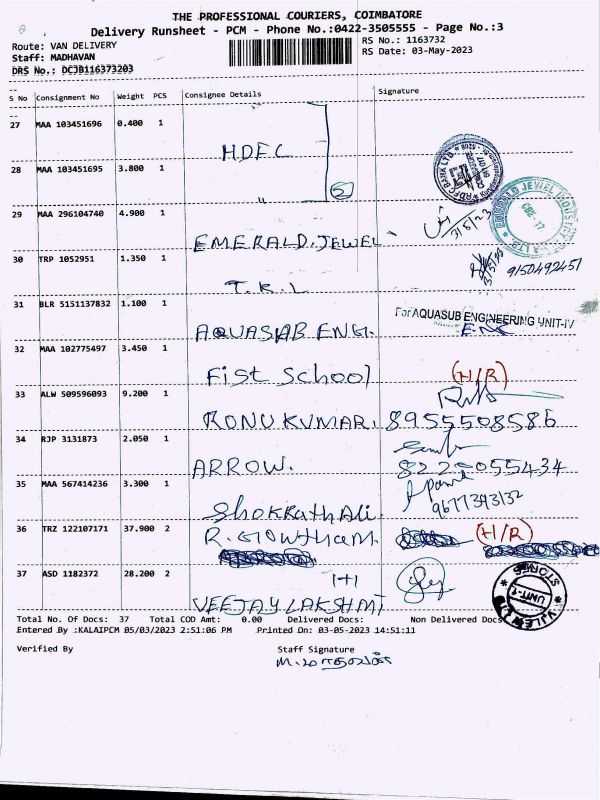 THE PROFESSIONAL COURIERS, COIMBATORE
Delivery Runsheet - PCM - Phone No.:0422-3505555 - Page No.:3
Route: VAN DELIVERY
RS No.: 1163732
Staff: MADHAVAN
RS Date: 03-May-2023
DRS No.: DCJB116373203
S No Consignment No Weight PCS Consignee Details Signature
27 MAA 103451696 0.400 1
HDFC
28 MAA 103451695 3.800 1
5
HDFC BANK LTD.
29 MAA 296104740 4.900 1
EMERALD JEWEL
3/5/23
EMERALD JEWEL INDUSTRY
CBE-17
30 TRP 1052951 1.350 1
T.R.L
9150492451
31 BLR 5151137832 1.100 1
AQUASAB ENGI.
For AQUASUB ENGINEERING UNIT-IV
32 MAA 102775497 3.450 1
Fist School
(H/R)
33 ALW 509596093 9.200 1
RONU KUMAR. 8955508586
34 RJP 3131873 2.050 1
ARROW.
8220055434
35 MAA 567414236 3.300 1
Shokkath Ali.
9677393132
36 TRZ 122107171 37.900 2
R. Glowtham.
(H/R)
37 ASD 1182372 28.200 2
1+1
VEEJAY LAKSHMI
STORES
UNIT-1
Total No. Of Docs: 37 Total COD Amt: 0.00 Delivered Docs: Non Delivered Docs
Entered By :KALAIPCM 05/03/2023 2:51:06 PM Printed On: 03-05-2023 14:51:11
Verified By
Staff Signature